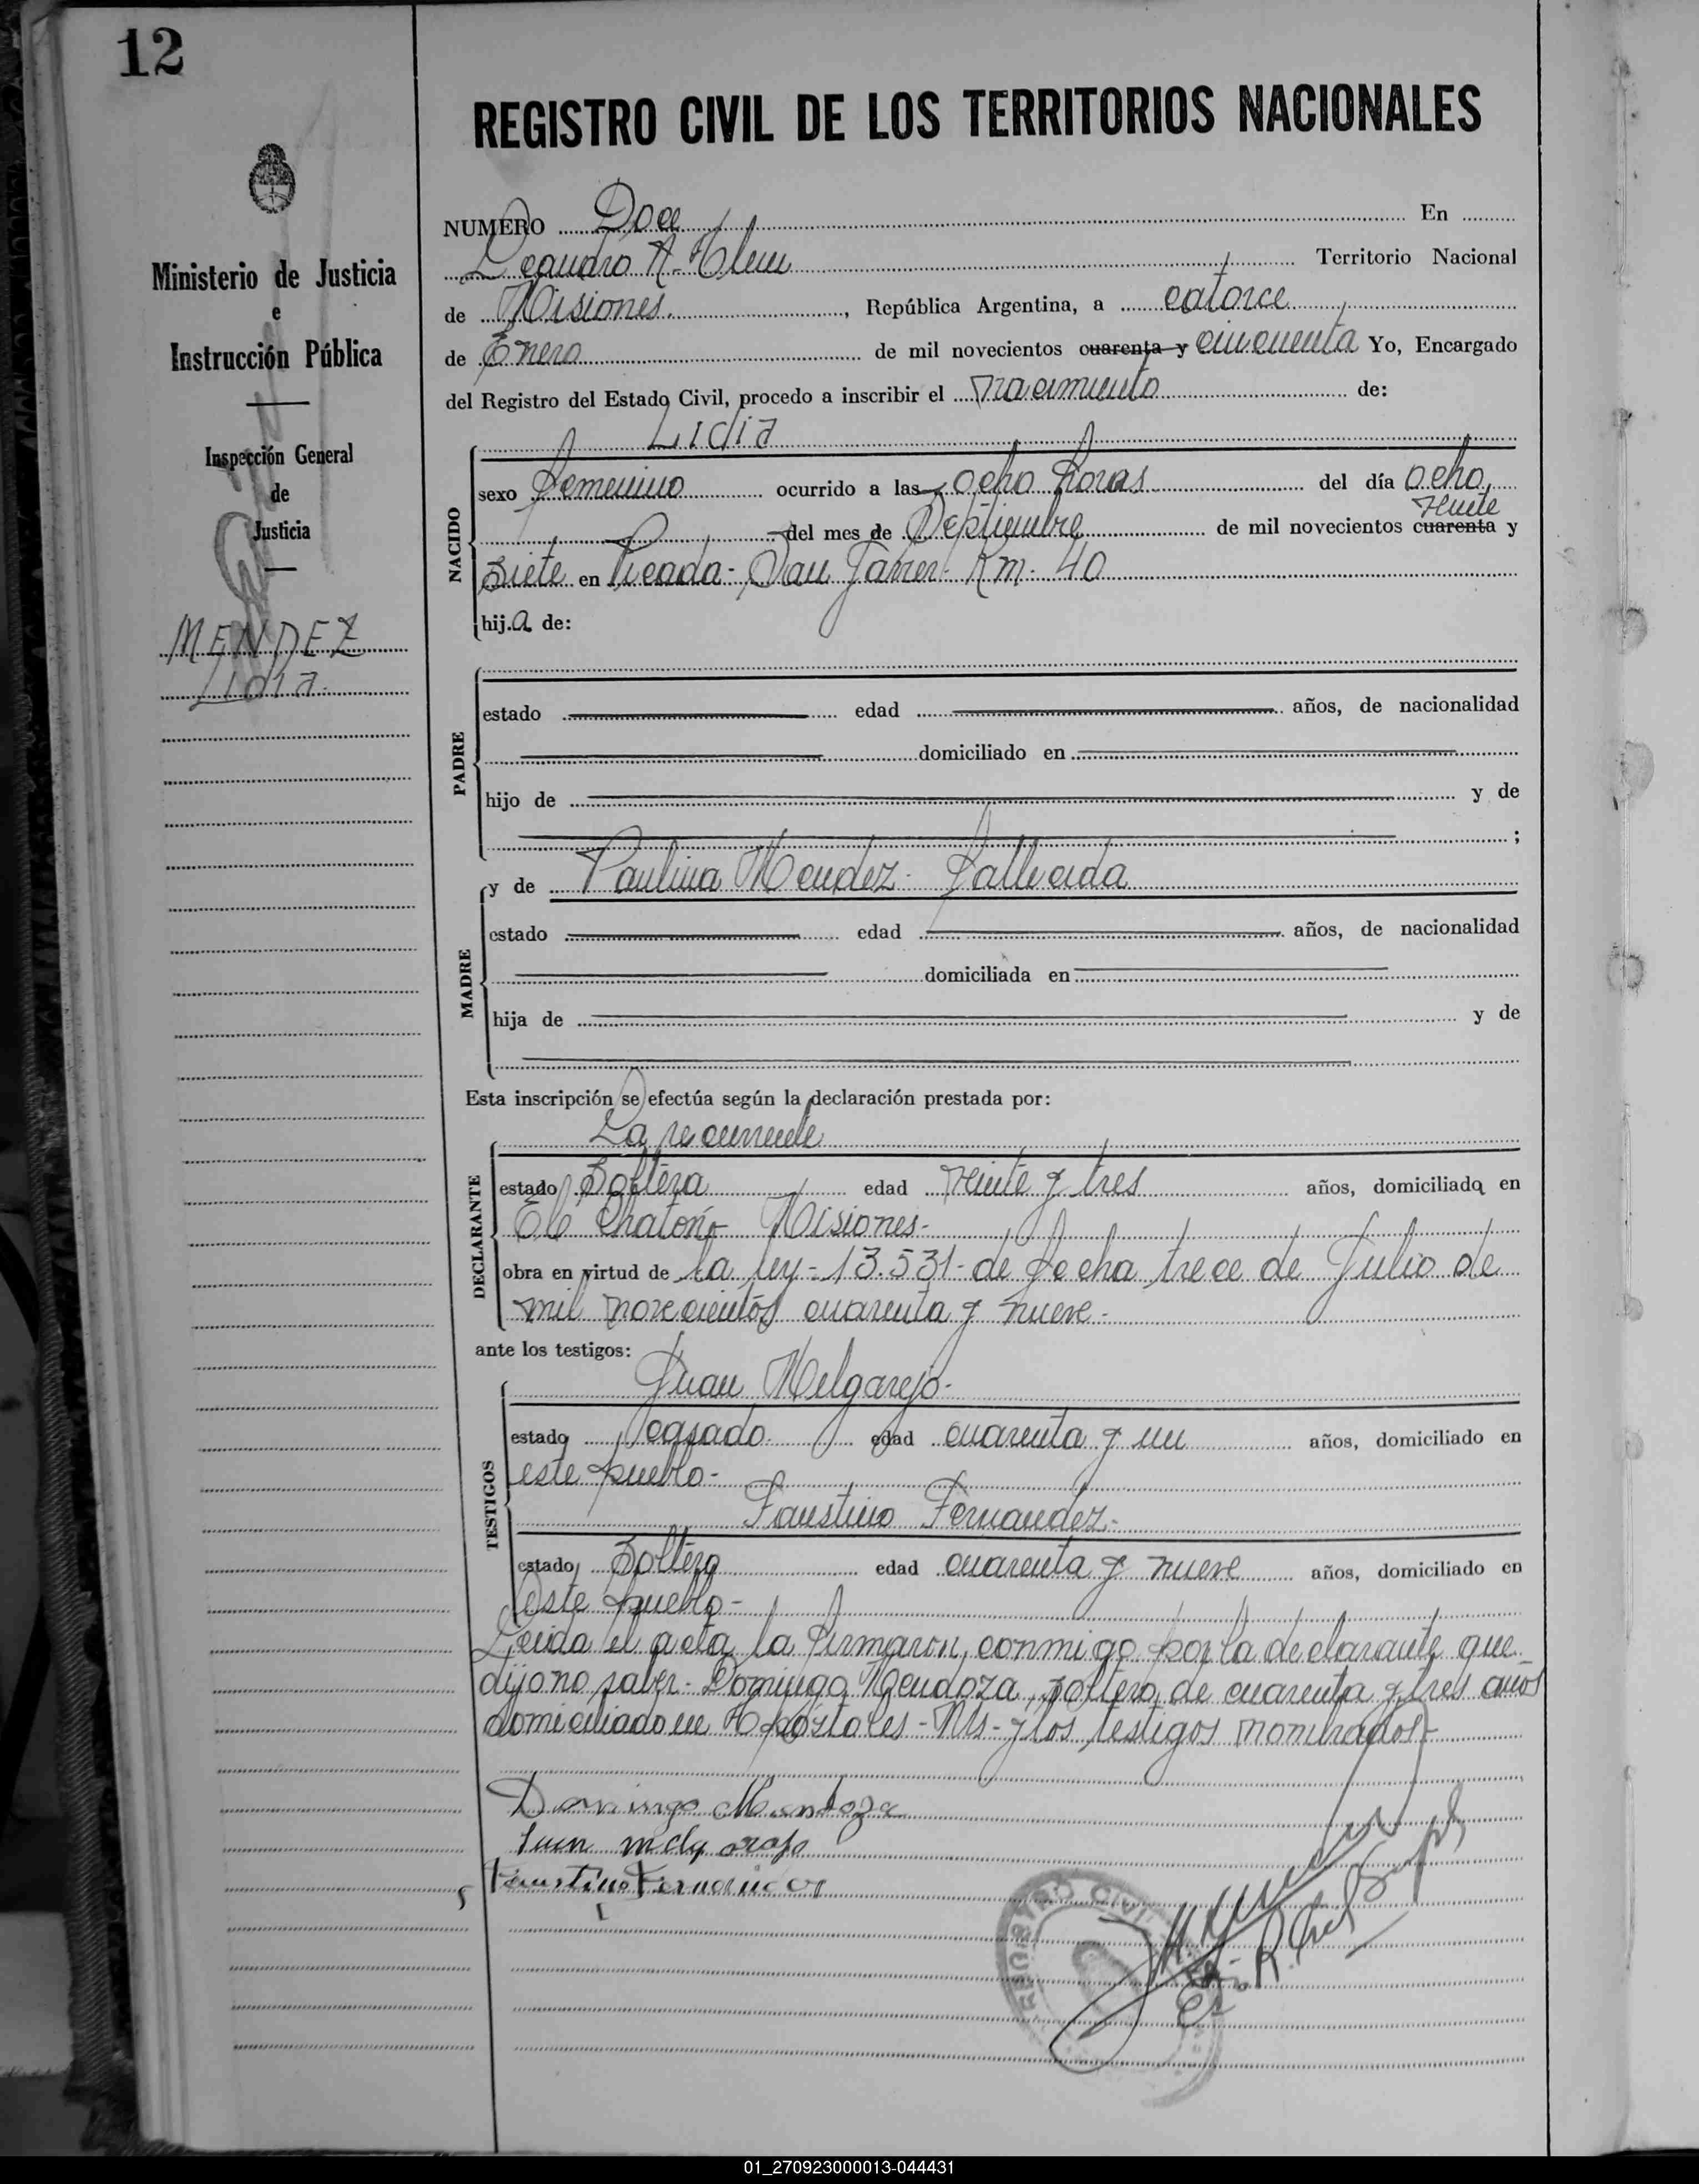 12
REGISTRO CIVIL DE LOS TERRITORIOS NACIONALES
Ministerio de Justicia
e
Instrucción Pública
Inspección General
de
Justicia
MENDEZ
Lidia
NUMERO Doce En
Leandro N. Alem Territorio Nacional
de Misiones, República Argentina, a catorce
de Enero de mil novecientos cuarenta y cincuenta Yo, Encargado
del Registro del Estado Civil, procedo a inscribir el nacimiento de:
Lidia
NACIDO
sexo femenino ocurrido a las ocho horas del día ocho
del mes de Septiembre de mil novecientos cuarenta y
veinte
siete en Picada - San Javier - Km - 40
hija de:
PADRE
estado edad años, de nacionalidad
domiciliado en
hijo de y de
;
MADRE
y de Paulina Mendez - fallecida
estado edad años, de nacionalidad
domiciliada en
hija de y de
Esta inscripción se efectúa según la declaración prestada por:
DECLARANTE
La recurrente
estado Soltera edad veinte y tres años, domiciliada en
El Misiones -
obra en virtud de la ley - 13.531 - de fecha trece de Julio de
mil novecientos cuarenta y nueve -
ante los testigos:
TESTIGOS
Juan Melgarejo -
estado casado edad cuarenta y un años, domiciliado en
este pueblo -
Faustino Fernandez -
estado Soltero edad cuarenta y nueve años, domiciliado en
Este pueblo -
Leida el acta la firmaron conmigo por la declarante que
dijo no saber - Domingo Mendoza, soltero, de cuarenta y tres años
domiciliado en Apostoles - Mis - y los testigos nombrados -
Domingo Mendoza
Faustino
REGISTRO CIVIL
01_270923000013-044431